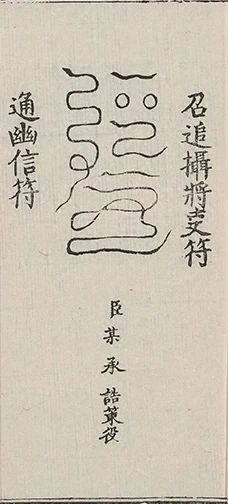 召追攝將吏符
臣某承誥策役
通幽信符